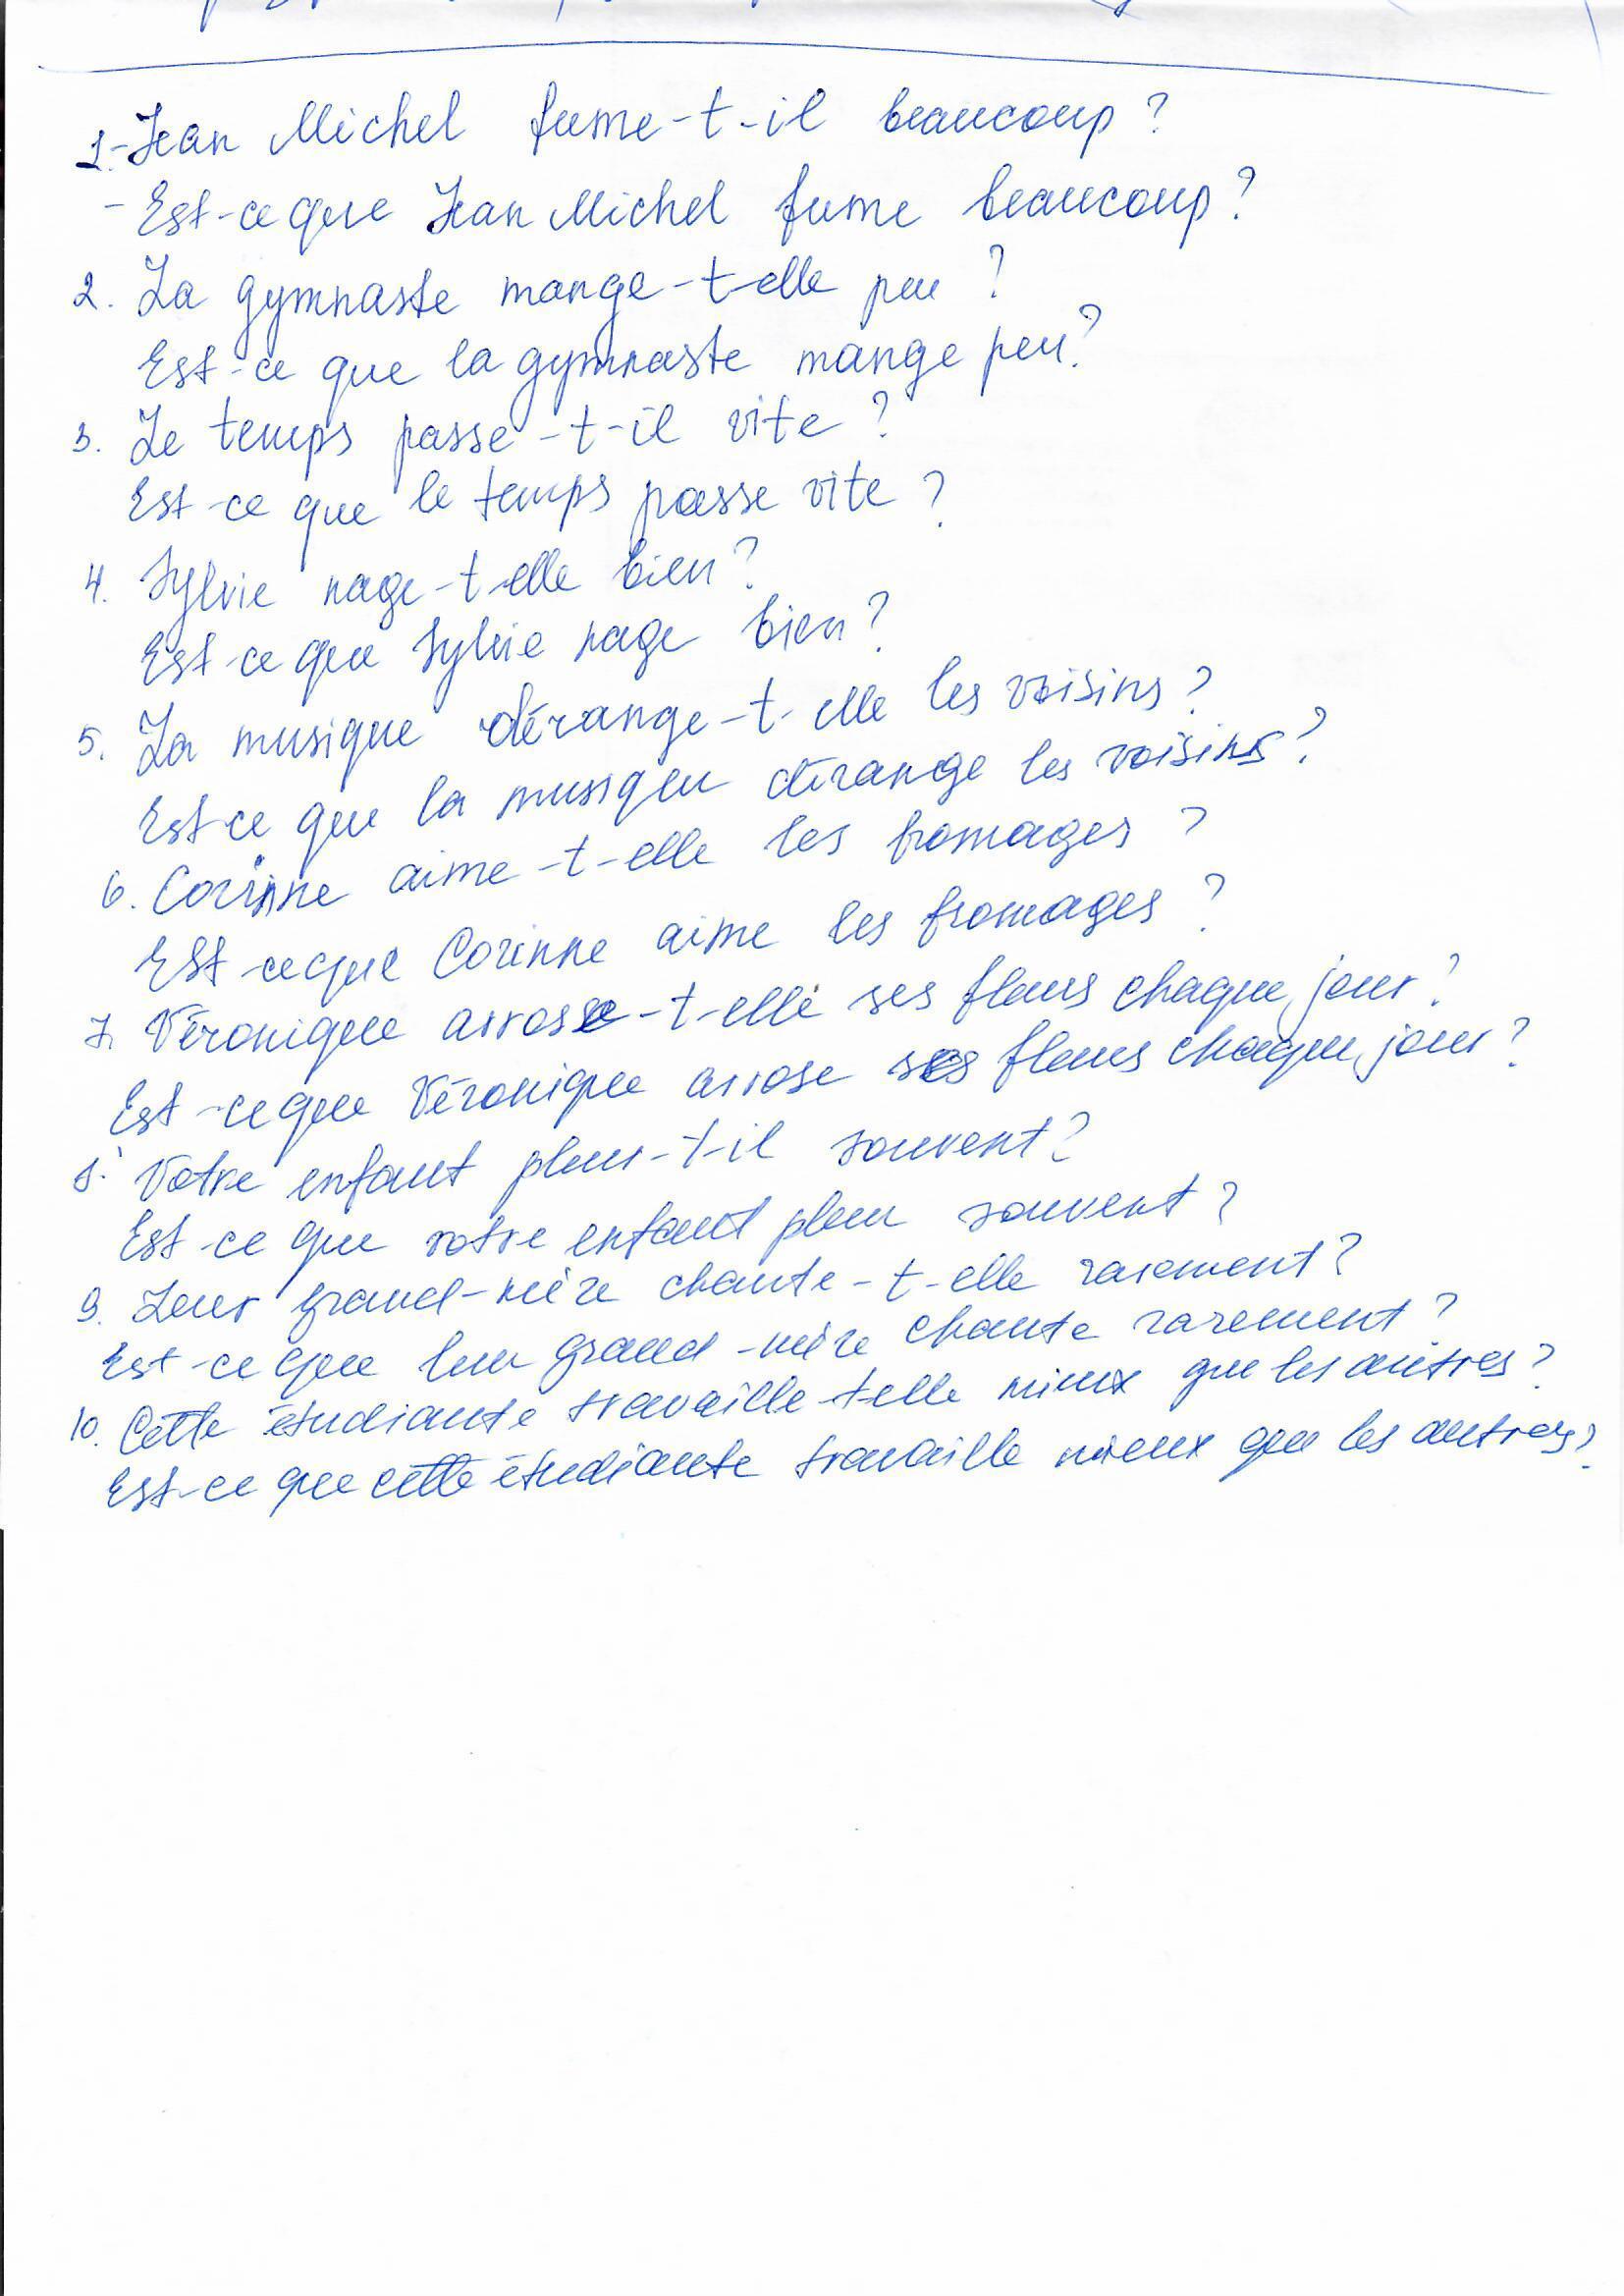 1.- Jean Michel fume-t-il beaucoup ?
- Est-ce que Jean Michel fume beaucoup ?
2. La gymnaste mange-t-elle peu ?
Est-ce que la gymnaste mange peu ?
3. Le temps passe-t-il vite ?
Est-ce que le temps passe vite ?
4. Sylvie nage-t-elle bien ?
Est-ce que Sylvie nage bien ?
5. La musique dérange-t-elle les voisins ?
Est-ce que la musiqeu dérange les voisins ?
6. Corinne aime-t-elle les fromages ?
Est-ce que Corinne aime les fromages ?
7. Véronique arrose-t-elle ses fleurs chaque jour ?
Est-ce que Véronique arrose ses fleurs chaque jour ?
8. Votre enfant pleur-t-il souvent ?
Est-ce que votre enfant pleur souvent ?
9. Leur grand-mère chante-t-elle rarement ?
Est-ce que leur grand-mère chante rarement ?
10. Cette étudiante travaille-t-elle mieux que les autres ?
Est-ce que cette étudiante travaille mieux que les autres ?